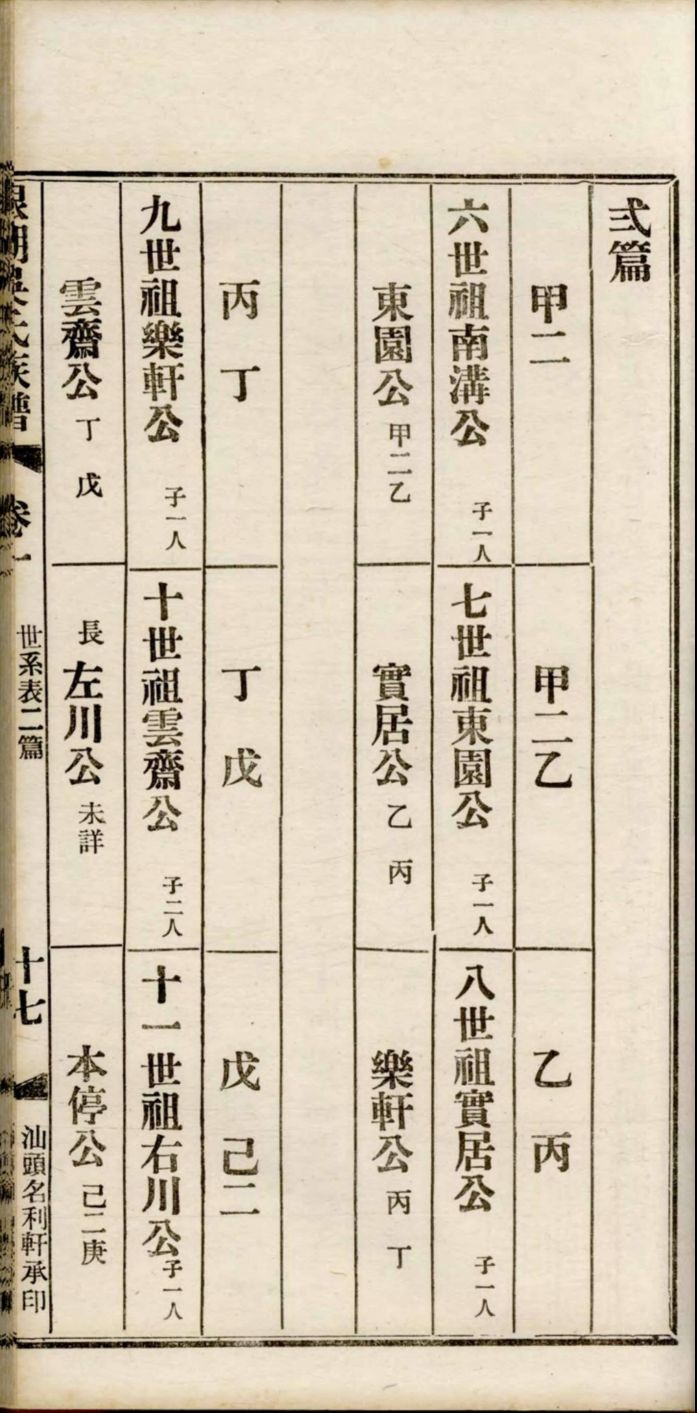 弍篇
甲二
甲二乙
乙 丙
六世祖南溝公 子一人
七世祖東園公 子一人
八世祖實居公 子一人
東園公 甲二乙
實居公 乙 丙
樂軒公 丙 丁
丙 丁
丁 戊
戊 己二
九世祖樂軒公 子一人
十世祖雲齋公 子二人
十一世祖右川公 子一人
雲齋公 丁 戊
長 左川公 未詳
本停公 己二庚
湖吳氏族譜 卷一 世系表二篇 十七 汕頭名利軒承印